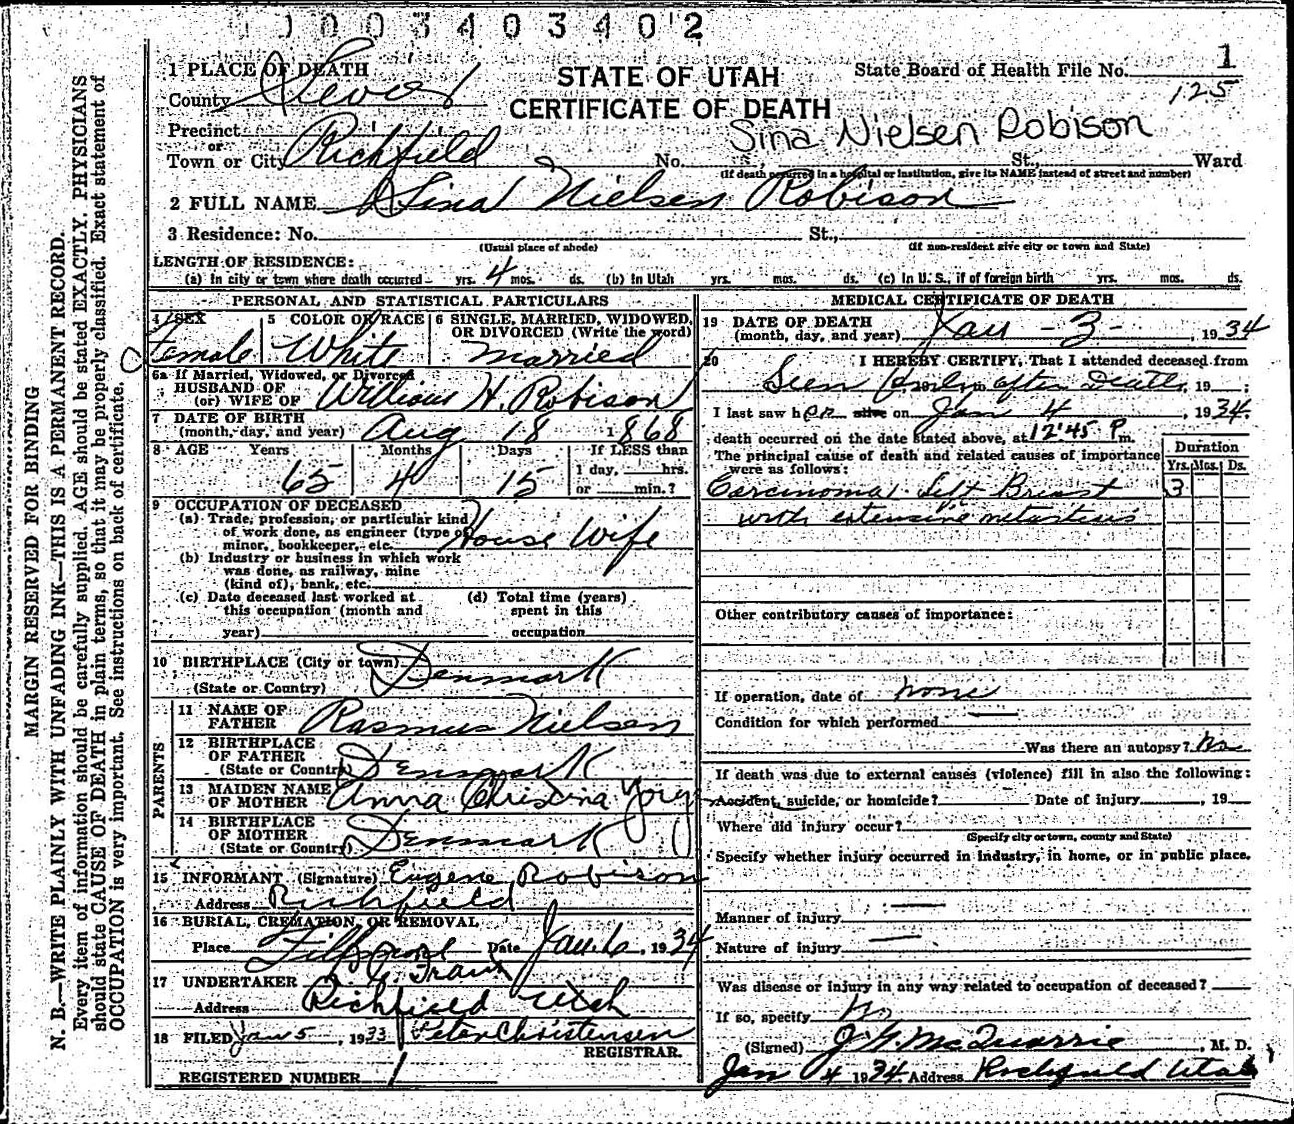 0 0 0 3 4 0 3 4 0 2
1 PLACE OF DEATH
County Sevier
STATE OF UTAH
CERTIFICATE OF DEATH
State Board of Health File No. 1
125
Precinct
or
Town or City Richfield No. St., Ward
Sina Nielsen Robison
(If death occurred in a hospital or institution, give its NAME instead of street and number)
2 FULL NAME Sina Nielsen Robison
3 Residence: No. St.,
(Usual place of abode) (If non-resident give city or town and State)
LENGTH OF RESIDENCE:
(a) In city or town where death occurred yrs. 4 mos. ds. (b) In Utah yrs. mos. ds. (c) In U. S., if of foreign birth yrs. mos. ds.
PERSONAL AND STATISTICAL PARTICULARS
4 SEX 5 COLOR OR RACE 6 SINGLE, MARRIED, WIDOWED, OR DIVORCED (Write the word)
Female White Married
6a If Married, Widowed, or Divorced
HUSBAND OF
(or) WIFE OF William H. Robison
7 DATE OF BIRTH
(month, day, and year) Aug 18 1868
8 AGE Years Months Days If LESS than
65 4 15 1 day, hrs.
or min.?
9 OCCUPATION OF DECEASED
(a) Trade, profession, or particular kind
of work done, as engineer (type of
minor, bookkeeper, etc. House Wife
(b) Industry or business in which work
was done, as railway, mine
(kind of), bank, etc.
(c) Date deceased last worked at
this occupation (month and
year)
(d) Total time (years)
spent in this
occupation
10 BIRTHPLACE (City or town) Denmark
(State or Country)
PARENTS
11 NAME OF
FATHER Rasmus Nielsen
12 BIRTHPLACE
OF FATHER
(State or Country) Denmark
13 MAIDEN NAME
OF MOTHER Anna Christina
14 BIRTHPLACE
OF MOTHER
(State or Country) Denmark
15 INFORMANT (Signature) Eugene Robison
Address Richfield
16 BURIAL, CREMATION, OR REMOVAL
Place Fillmore Date Jan. 6 1934
17 UNDERTAKER
Address Richfield Utah
18 FILED Jan 5, 1933 Peter Christensen
REGISTRAR.
REGISTERED NUMBER 1
MEDICAL CERTIFICATE OF DEATH
19 DATE OF DEATH
(month, day, and year) Jan - 3 - , 1934
20 I HEREBY CERTIFY, That I attended deceased from
Seen only after Death, 19 ;
I last saw her alive on Jan 4, 1934.
death occurred on the date stated above, at 12:45 P m.
The principal cause of death and related causes of importance
were as follows:
Duration
Yrs. Mos. Ds.
Carcinoma Left Breast 3
with extensive metastasis
Other contributory causes of importance:
If operation, date of none
Condition for which performed
Was there an autopsy? No
If death was due to external causes (violence) fill in also the following:
Accident, suicide, or homicide? Date of injury , 19
Where did injury occur?
(Specify city or town, county and State)
Specify whether injury occurred in industry, in home, or in public place.
Manner of injury
Nature of injury
Was disease or injury in any way related to occupation of deceased?
If so, specify No
(Signed) J. G. McQuarrie, M. D.
Jan 4 1934 Address Richfield Utah
MARGIN RESERVED FOR BINDING
N. B.—WRITE PLAINLY WITH UNFADING INK—THIS IS A PERMANENT RECORD.
Every item of information should be carefully supplied. AGE should be stated EXACTLY. PHYSICIANS
should state CAUSE OF DEATH in plain terms, so that it may be properly classified. Exact statement of
OCCUPATION is very important. See instructions on back of certificate.